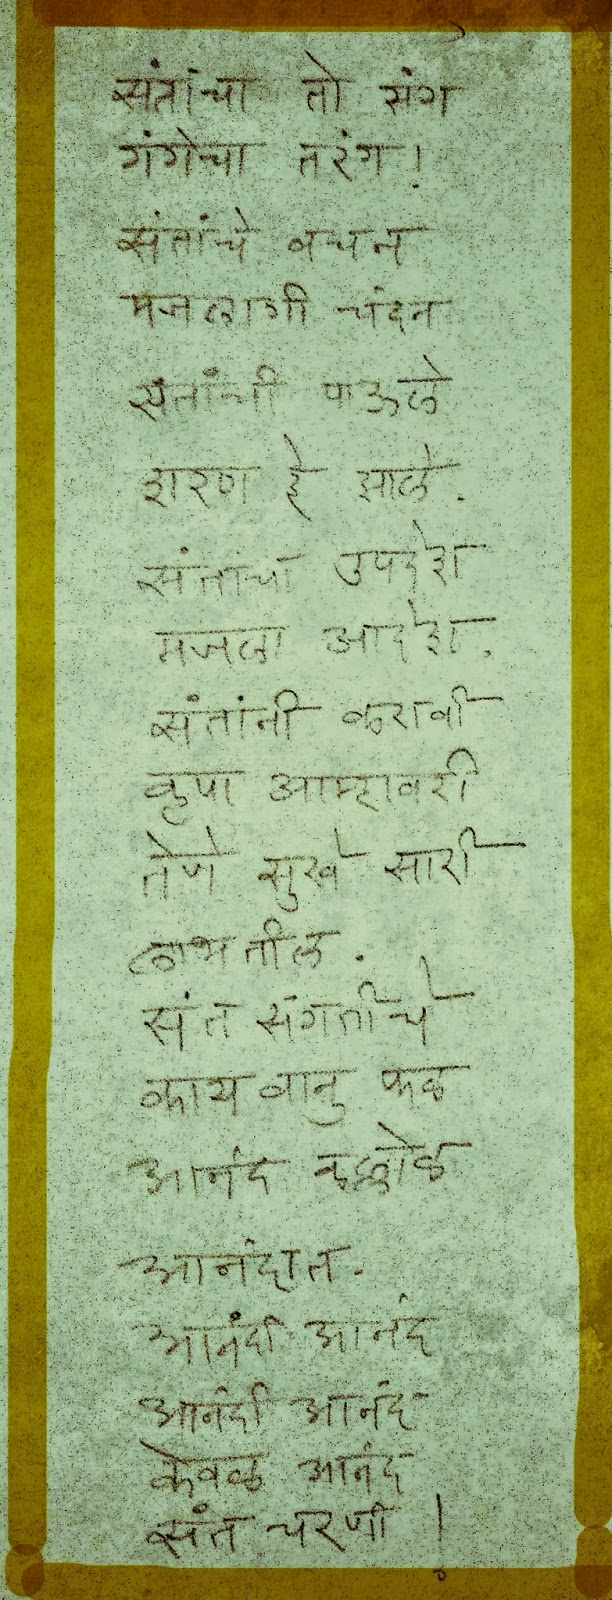 संतांचा तो संग
गंगेचा तरंग!
संतांचे वचन
मजलागी चंदन
संतांची पाऊले
शरण हे आले.
संतांचा उपदेश
मजला आदेश.
संतांनी करावी
कृपा आम्हावरी
तेणे सुखे सारी
लाभतील.
संत संगतीचे
काय वानु फळ
आनंद कल्लोळ
आनंदात.
आनंदी आनंद
आनंदी आनंद
केवळ आनंद
संत चरणी!